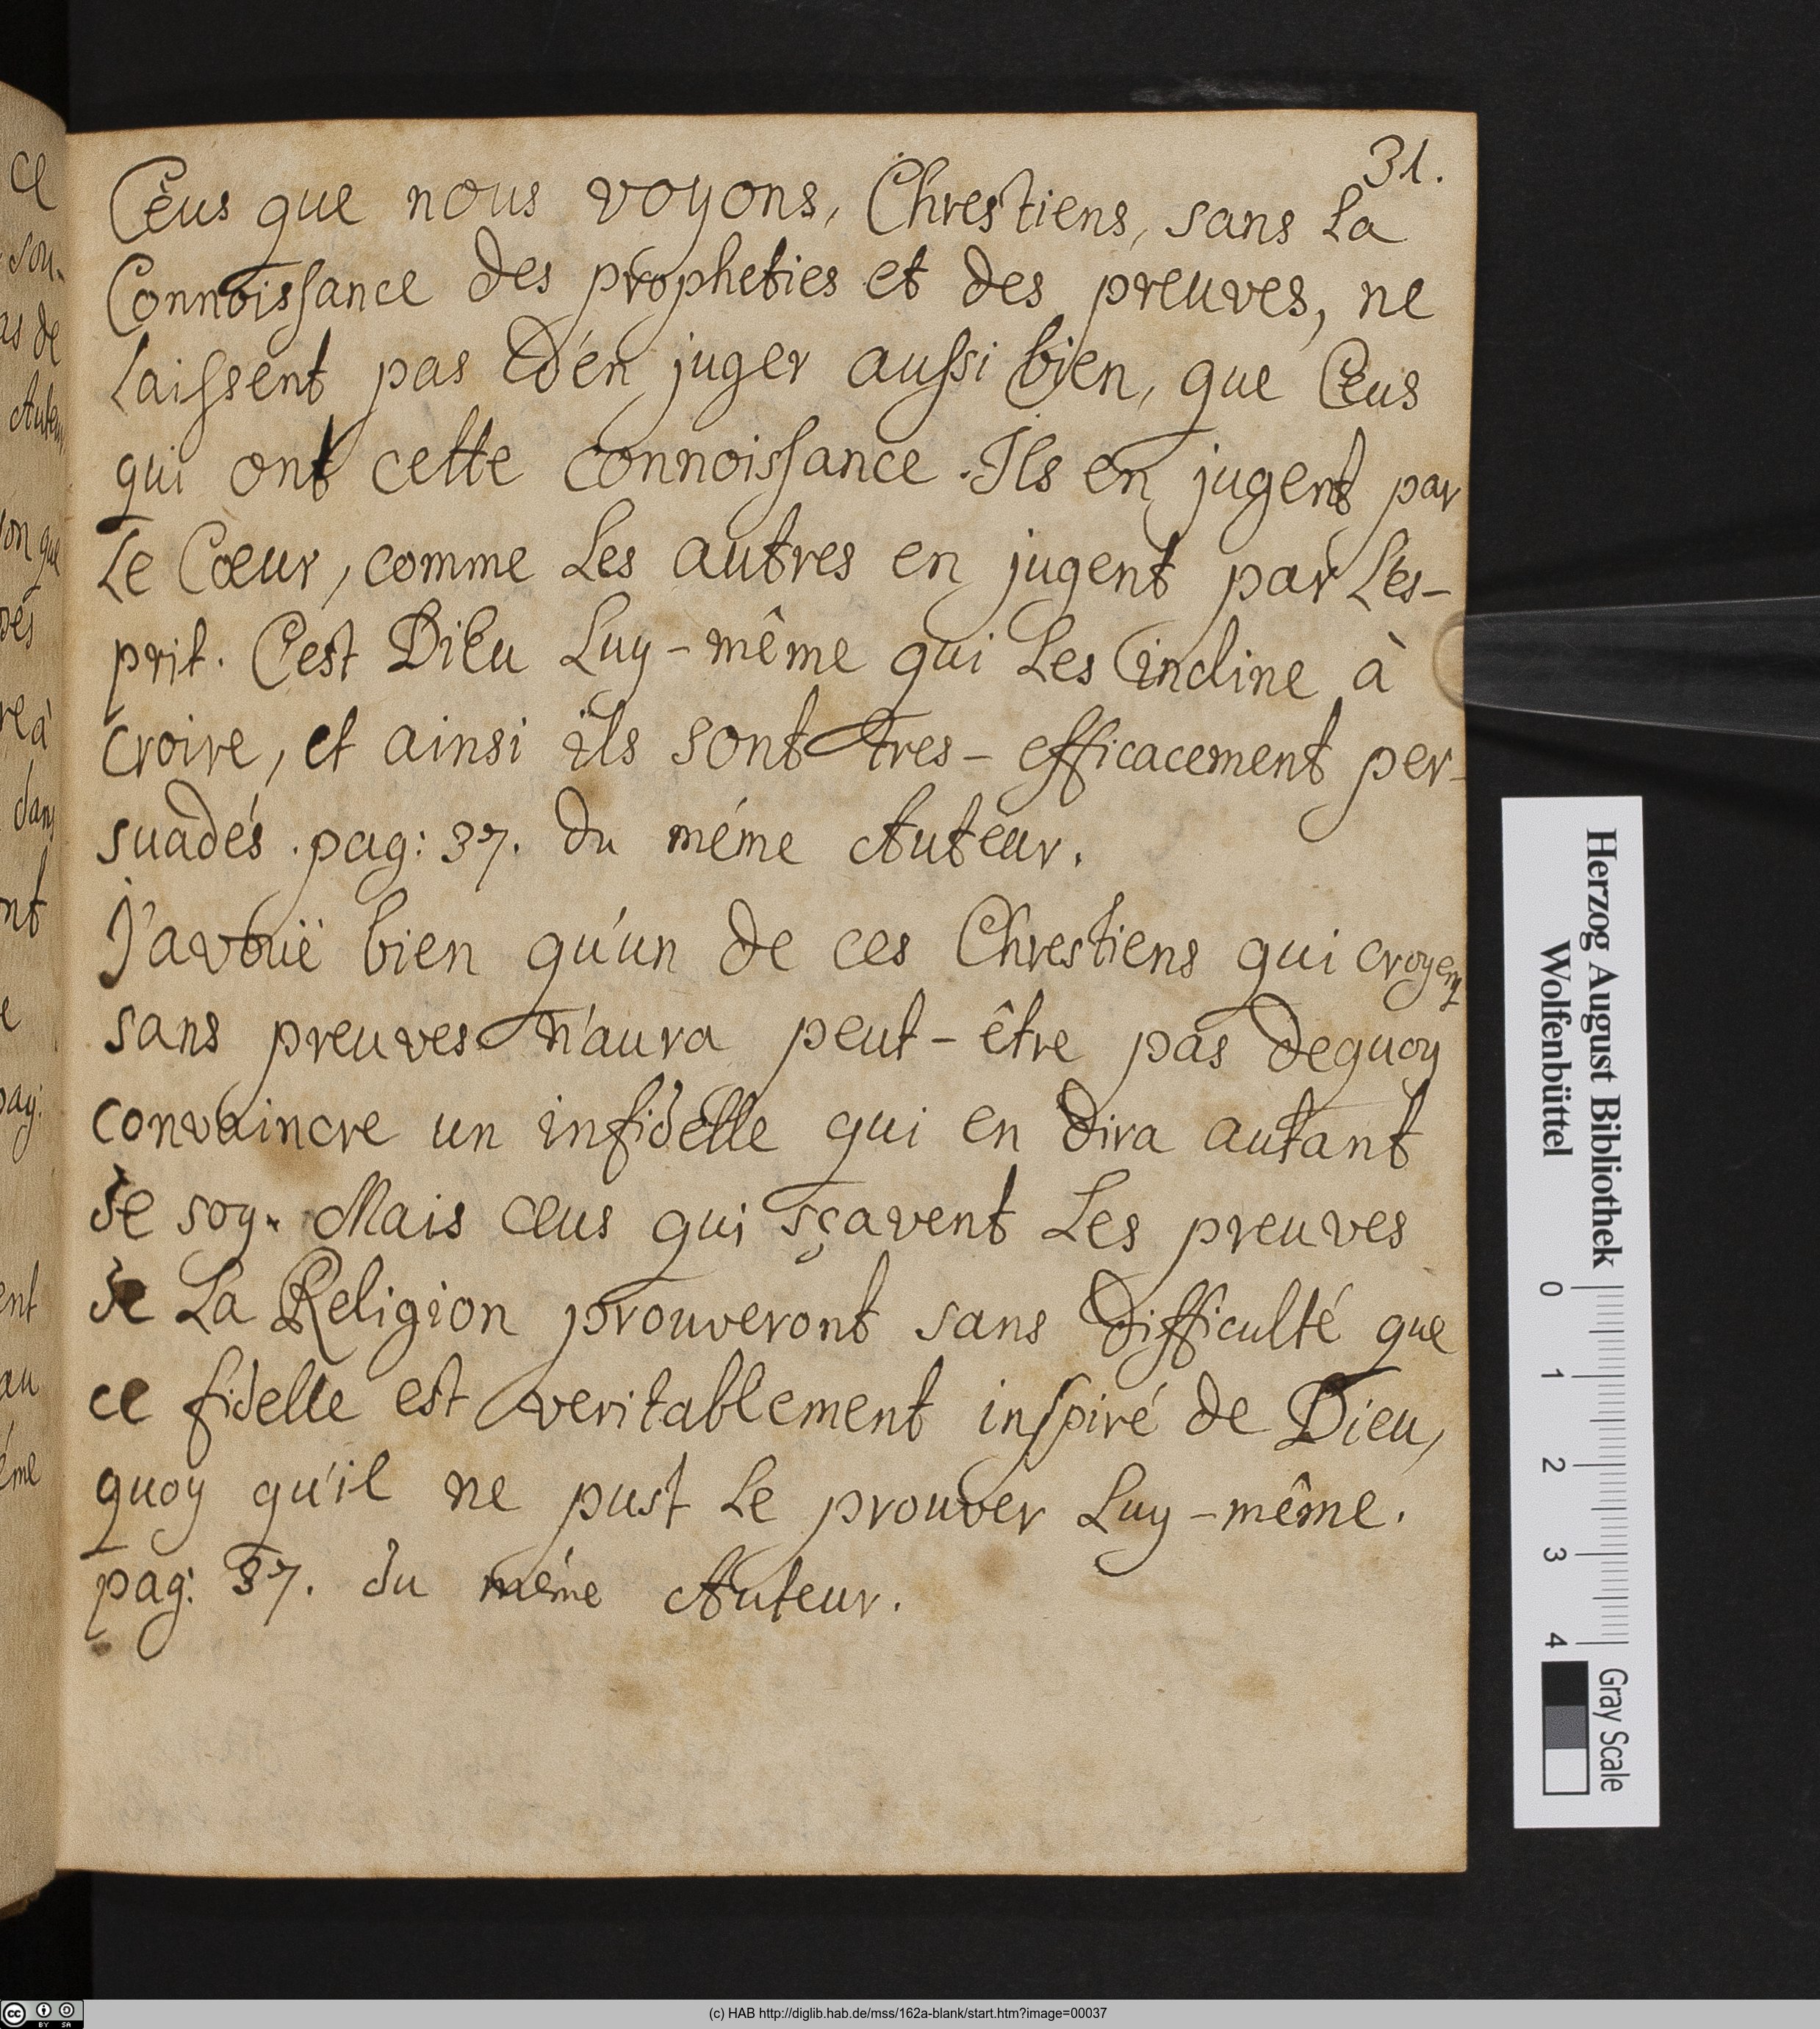 31.
Ceus que nous voyons, Chrestiens, sans La
Connoissance des propheties et des preuves, ne
Laissent pas d'en juger aussi bien, que Ceus
qui ont cette connoissance. Ils en jugent par
Le Cœur, comme Les autres en jugent par L'es-
prit. C'est Dieu Luy-même qui Les incline à
croire, et ainsi ils sont tres-efficacement per-
suadés. pag: 37. du méme Auteur.
J'avouë bien qu'un de ces Chrestiens qui croyent
sans preuves n'aura peut-être pas dequoy
convaincre un infidelle qui en dira autant
de soy. Mais ceus qui sçavent Les preuves
de La Religion prouveront sans difficulté que
ce fidelle est veritablement inspiré de Dieu,
quoy qu'il ne pust Le prouver Luy-même.
pag: 37. du méme Auteur.
ce
sou-
as de
Auteur
ion que
ves
re à
dans
ont
e
pag:
ent
au
éme
Herzog August Bibliothek
Wolfenbüttel
0 1 2 3 4
Gray Scale
(c) HAB http://diglib.hab.de/mss/162a-blank/start.htm?image=00037
cc BY SA